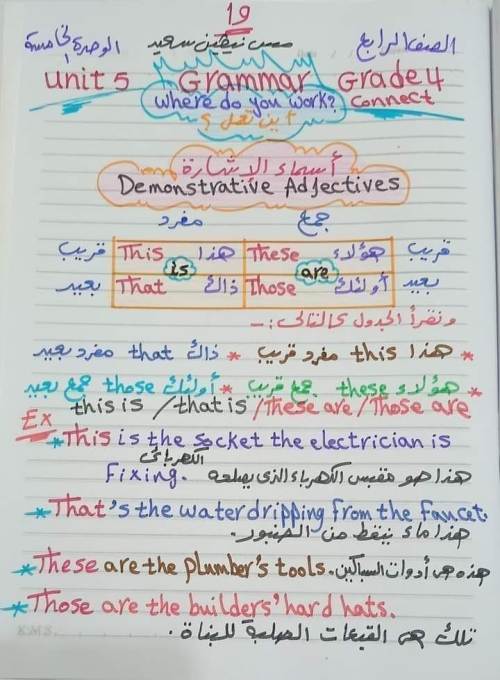 19
الصف الرابع مس نيڤين سعيد الوحدة الخامسة
Unit 5 Grammar Grade 4
Where do you work? Connect
أين تعمل ؟
أسماء الإشارة
Demonstrative Adjectives
مفرد جمع
قريب This هذا These هؤلاء قريب
is are
بعيد That ذاك Those أولئك بعيد
ونقرأ الجدول كالتالى :-
* هذا this مفرد قريب * ذاك that مفرد بعيد
* هؤلاء these جمع قريب * أولئك those جمع بعيد
this is / that is / These are / Those are
Ex
* This is the socket the electrician is
الكهربائى
Fixing. هذا هو مقبس الكهرباء الذى يصلحه
* That's the water dripping from the faucet.
هذا ماء ينقط من الصنبور.
* These are the plumber's tools. هذه هى أدوات السباكين
* Those are the builders' hard hats.
تلك هى القبعات الصلبة للبناة .
K.M.S.